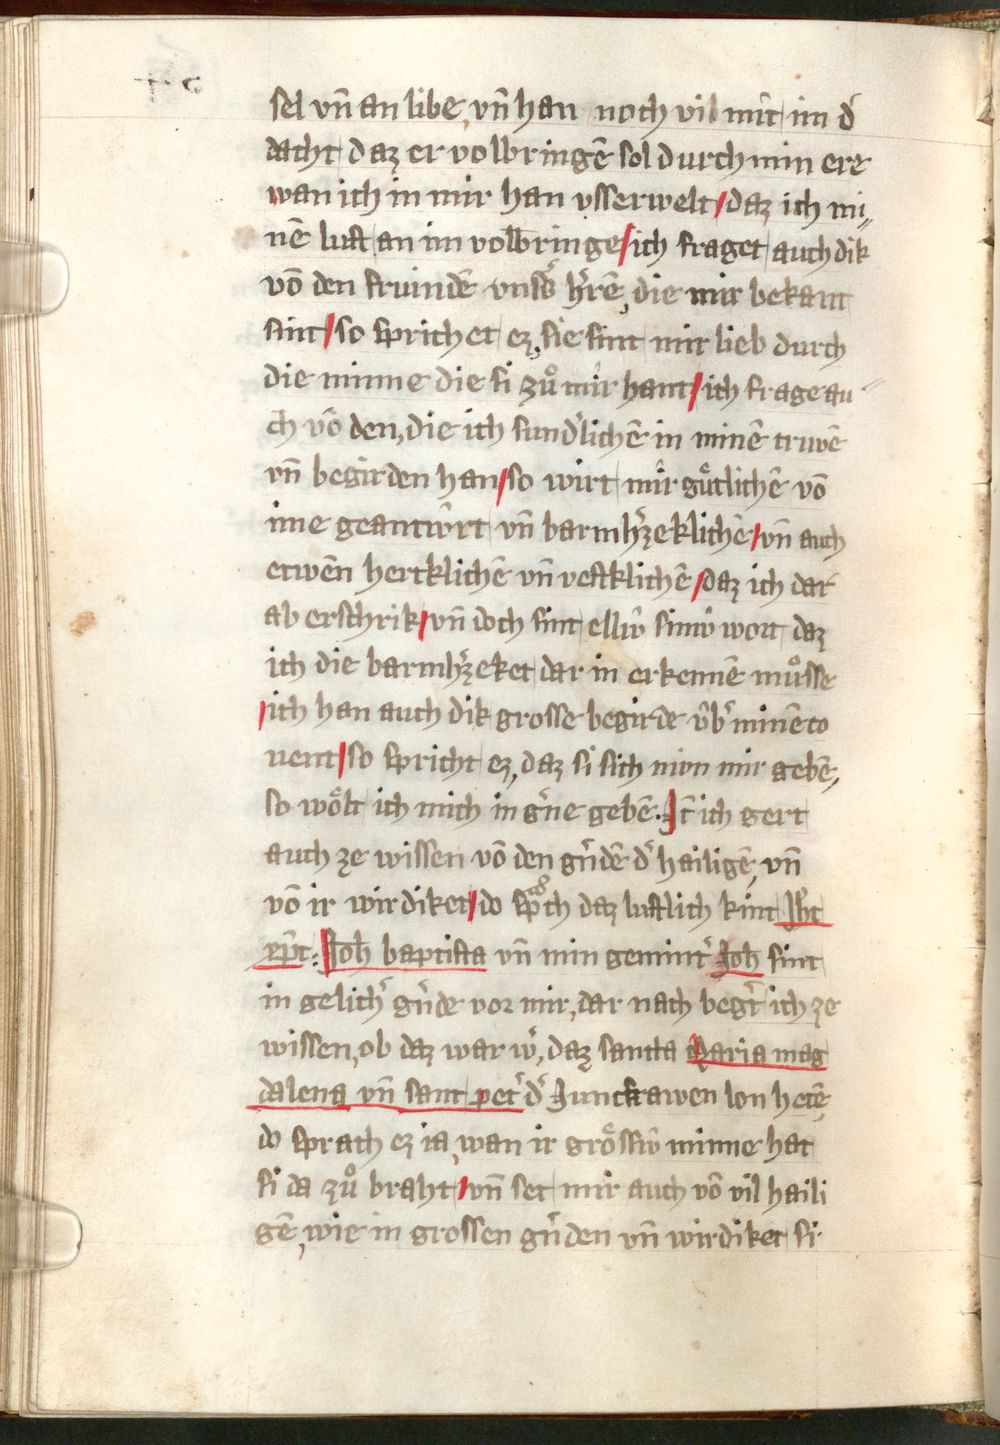 sel vn̄ an libe, vn̄ han noch vil mit im d᷎
dacht daz er volbringē sol durch min ere
wan ich in mir han vsserwelt / daz ich mi„
nē lust an im volbringe / ich fraget auch dik
vō den fruindē vnsͣs h᷎rē, die mir bekant
sint / so sprichet ez, sie sint mir lieb durch
die minne die si zuͦ mir hant / ich frage au„
ch vō den, die ich sund᷎lichē in minē truwē
vn̄ begirden han / so wirt mir guͤtlichē vō
ime geantwͥrt vn̄ barmh᷎zeklichē / vn̄ auch
etwēn hertklichē vn̄ vestklichē / daz ich dar
ab erschrik / vn̄ doch sint ellwͥ sinwͥ wort daz
ich die barmh᷎zeket dar in erkennē muͦsse
/ ich han auch dik grosse begirde vͥb᷎ minē co
uent / so spricht ez, daz si sich niwn mir gebē,
so woͤlt ich mich in g᷎ne gebē. Jt̄ ich gert
auch ze wissen vō den gn᷎dē d᷎ hailigē, vn̄
vō ir wirdiket / do spͣch daz lustlich kint Jh᷎c
xp̄c: Joh̄ baptista vn̄ min gemint᷎ Joh̄ sint
in gelich᷎ gn᷎de vor mir, dar nach beg᷎t ich ze
wissen, ob daz war w᷎, daz santta Maria mag
dalena vn̄ sant pet᷎ d᷎ Junckfrawen lon hetē,
do sprach ez ia, wan ir groͤsswͥ minne hat
si da zuͦ braht / vn̄ set mir auch vō vil haili
gē, wie in grossen gn᷎den vn̄ wirdiket si